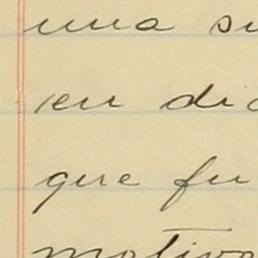 una su
en di
que fu
motivo